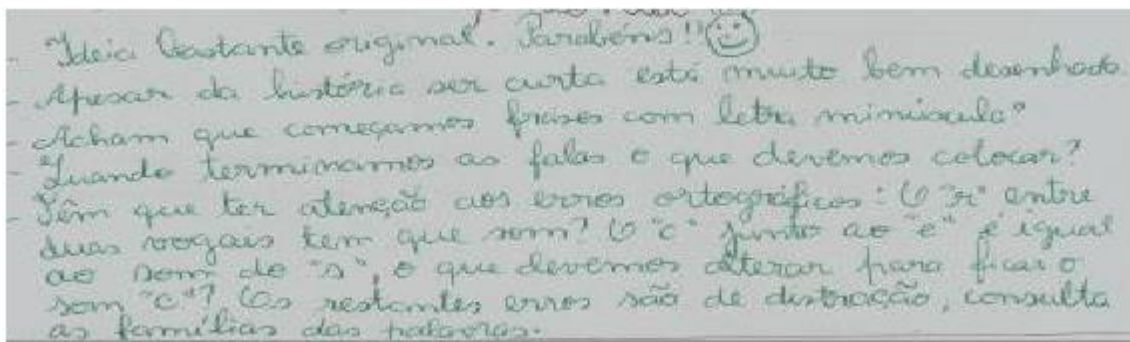 - Ideia bastante original. Parabéns!! ☺
- Apesar da história ser curta está muito bem desenhado.
- Acham que começamos frases com letra minúscula?
- Quando terminamos as falas o que devemos colocar?
- Têm que ter atenção aos erros ortográficos: O "r" entre
duas vogais tem que som? O "c" junto ao "e" é igual
ao som do "s", o que devemos alterar para ficar o
som "c"? Os restantes erros são de distração, consulta
as famílias das palavras.